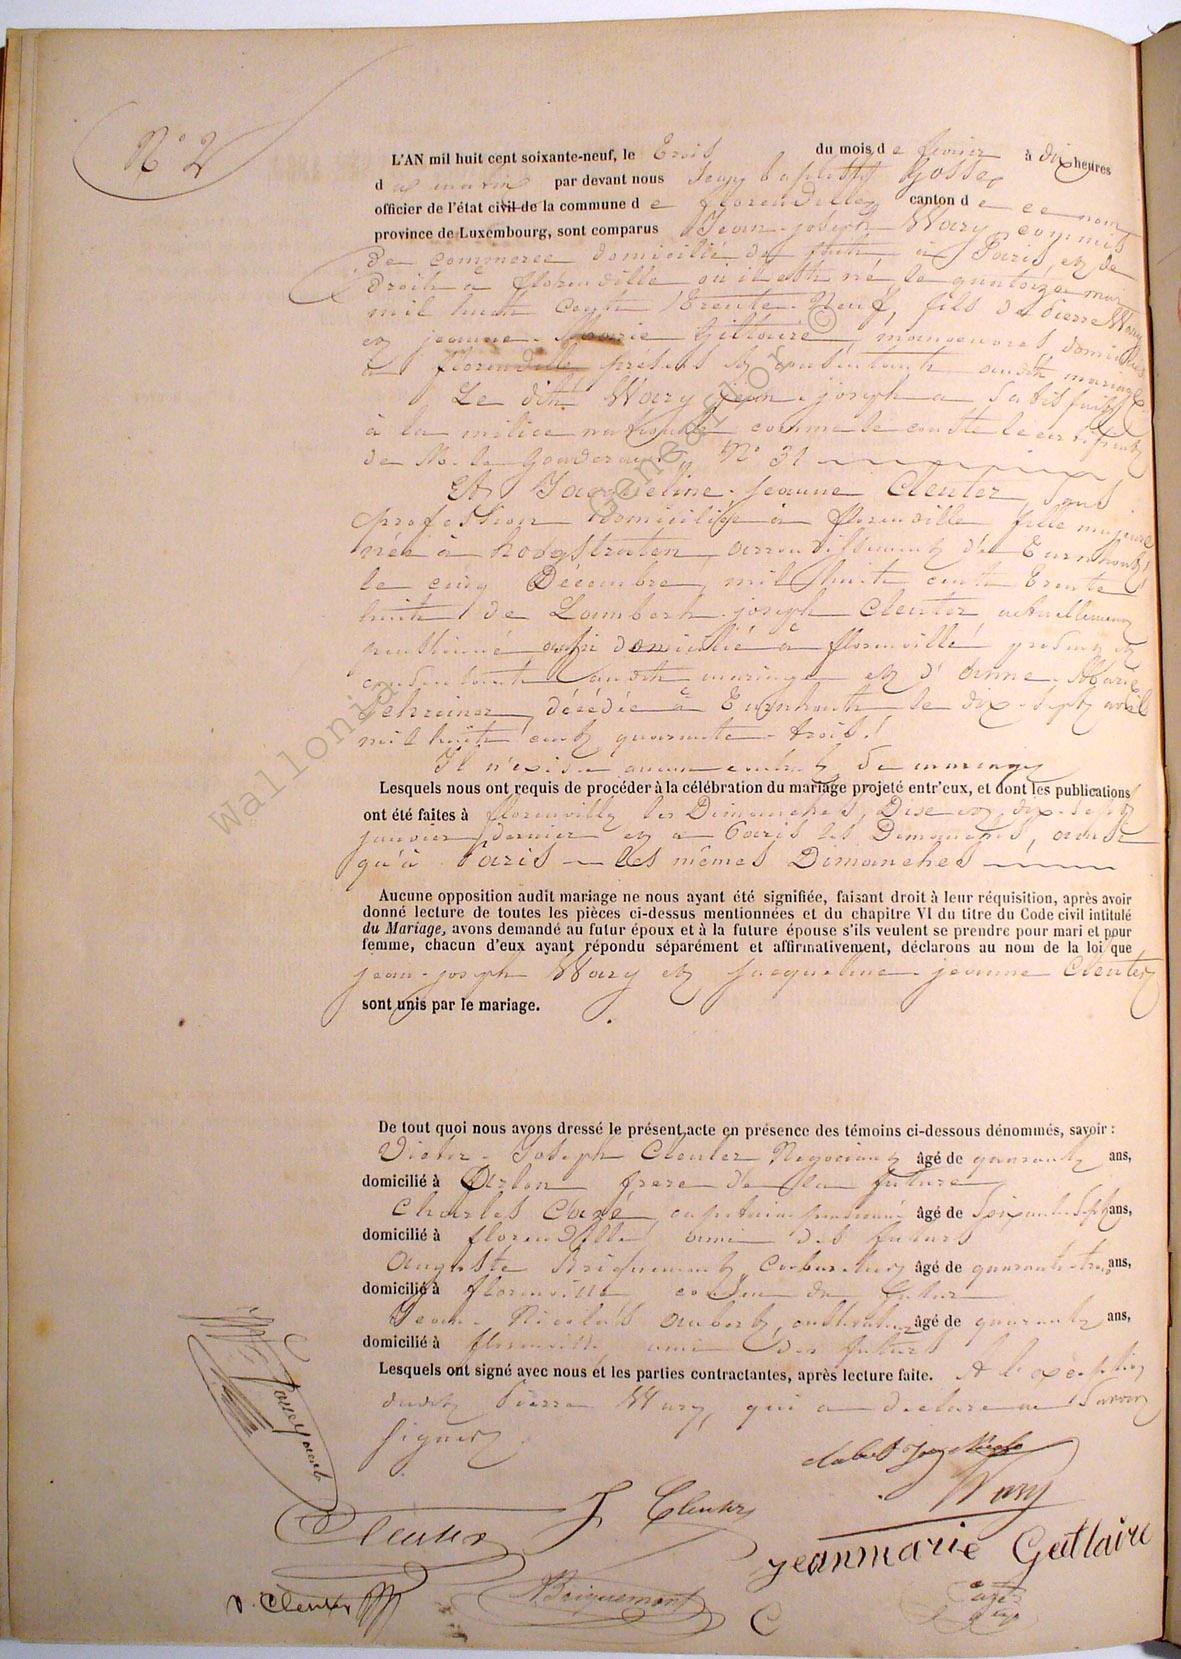 N° 2
L'AN mil huit cent soixante-neuf, le Trois du mois de février à dix heures
du matin par devant nous Jean baptiste Gosse
officier de l'état civil de la commune de florenville canton de ce nom
province de Luxembourg, sont comparus Jean-joseph Wary commis
de commerce domicilié de fait à Paris et de
droit à florenville où il est né le quatorze mai
mil huit cent trente-Neuf, fils de Pierre Wary
et jeanne-Marie Gillaire, manoeuvres domiciliés
à florenville présents et consentants audit mariage
Le dit Wary jean-joseph a satisfait
à la milice nationale comme le conste le certificat
de M. le Gouverneur N° 31
Et Jacqueline-jeanne Cleuter, sans
profession domiciliée à florenville fille majeure
née à hoogstraten, arrondissement de Turnhout
le cinq Décembre mil huit cent trente
huit de Lambert-joseph Cleuter, actuellement
pensionné aussi domicilié à florenville présent et
consentant audit mariage et d'anne-Marie
Schreiner, décédée à Turnhout le dix-sept avril
mil huit cent quarante-trois.
Il n'existe aucun contrat de mariage
Lesquels nous ont requis de procéder à la célébration du mariage projeté entr'eux, et dont les publications
ont été faites à florenville les Dimanches, Dix et dix-sept
janvier dernier et à Paris les Dimanches, ainsi
qu'à Paris les mêmes Dimanches
Aucune opposition audit mariage ne nous ayant été signifiée, faisant droit à leur réquisition, après avoir
donné lecture de toutes les pièces ci-dessus mentionnées et du chapitre VI du titre du Code civil intitulé
du Mariage, avons demandé au futur époux et à la future épouse s'ils veulent se prendre pour mari et pour
femme, chacun d'eux ayant répondu séparément et affirmativement, déclarons au nom de la loi que
jean-joseph Wary et jacqueline-jeanne Cleuter
sont unis par le mariage.
De tout quoi nous avons dressé le présent acte en présence des témoins ci-dessous dénommés, savoir :
Victor-Joseph Cleuter Negociant âgé de quarante ans,
domicilié à Arlon frere de la future
Charles Cazé, capitaine pensionné âgé de Soixante Sept ans,
domicilié à florenville ami des futurs
Auguste Briquemont, âgé de quarante-trois ans,
domicilié à florenville cousin du futur
Jean-Nicolas aubert, cultivateur âgé de quarante ans,
domicilié à florenville, ami des futurs
Lesquels ont signé avec nous et les parties contractantes, après lecture faite. A l'exception
dudit Pierre Wary, qui a declaré ne Savoir
signer.
Wary
Cleuter J. Cleuter
jeanmarie Gutlaire
V. Cleuter
Briquemont
Wallonia Genealogy ©